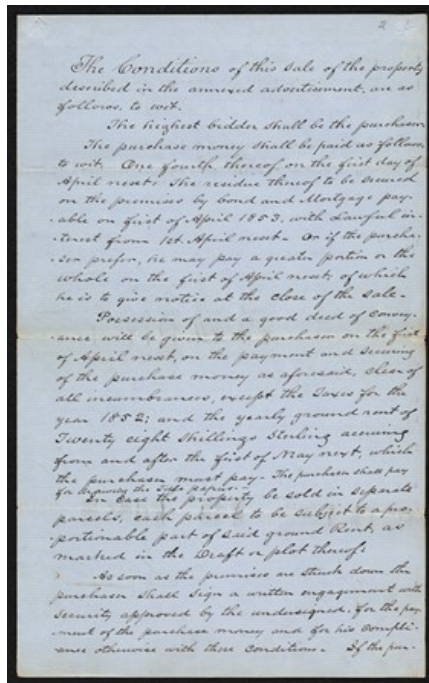 2
The Conditions of this sale of the property
described in the annexed advertisement, are as
follows, to wit.
The highest bidder shall be the purchaser.
The purchase money shall be paid as follows,
to wit, One fourth thereof on the first day of
April next; the residue thereof to be secured
on the premises by bond and Mortgage pay-
-able on first of April 1853, with Lawful in-
-terest from 1st April next. Or if the purcha-
-ser prefer, he may pay a greater portion or the
whole on the first of April next, of which
he is to give notice at the close of the sale.
Possession of and a good deed of convey-
-ance will be given to the purchaser on the first
of April next, on the payment and securing
of the purchase money as aforesaid, clear of
all incumbrances, except the Taxes for the
year 1852; and the yearly ground rent of
Twenty eight shillings Sterling accruing
from and after the first of May next, which
the purchaser must pay. The purchaser shall pay
for the title papers.
In case the property be sold in separate
parcels, each parcel to be subject to a pro-
-portionable part of said ground Rent, as
marked in the Draft or plot thereof.
As soon as the premises are struck down the
purchaser shall sign a written engagement with
security approved by the undersigned, for the pay-
-ment of the purchase money and for his compli-
-ance otherwise with these conditions. If the pur-